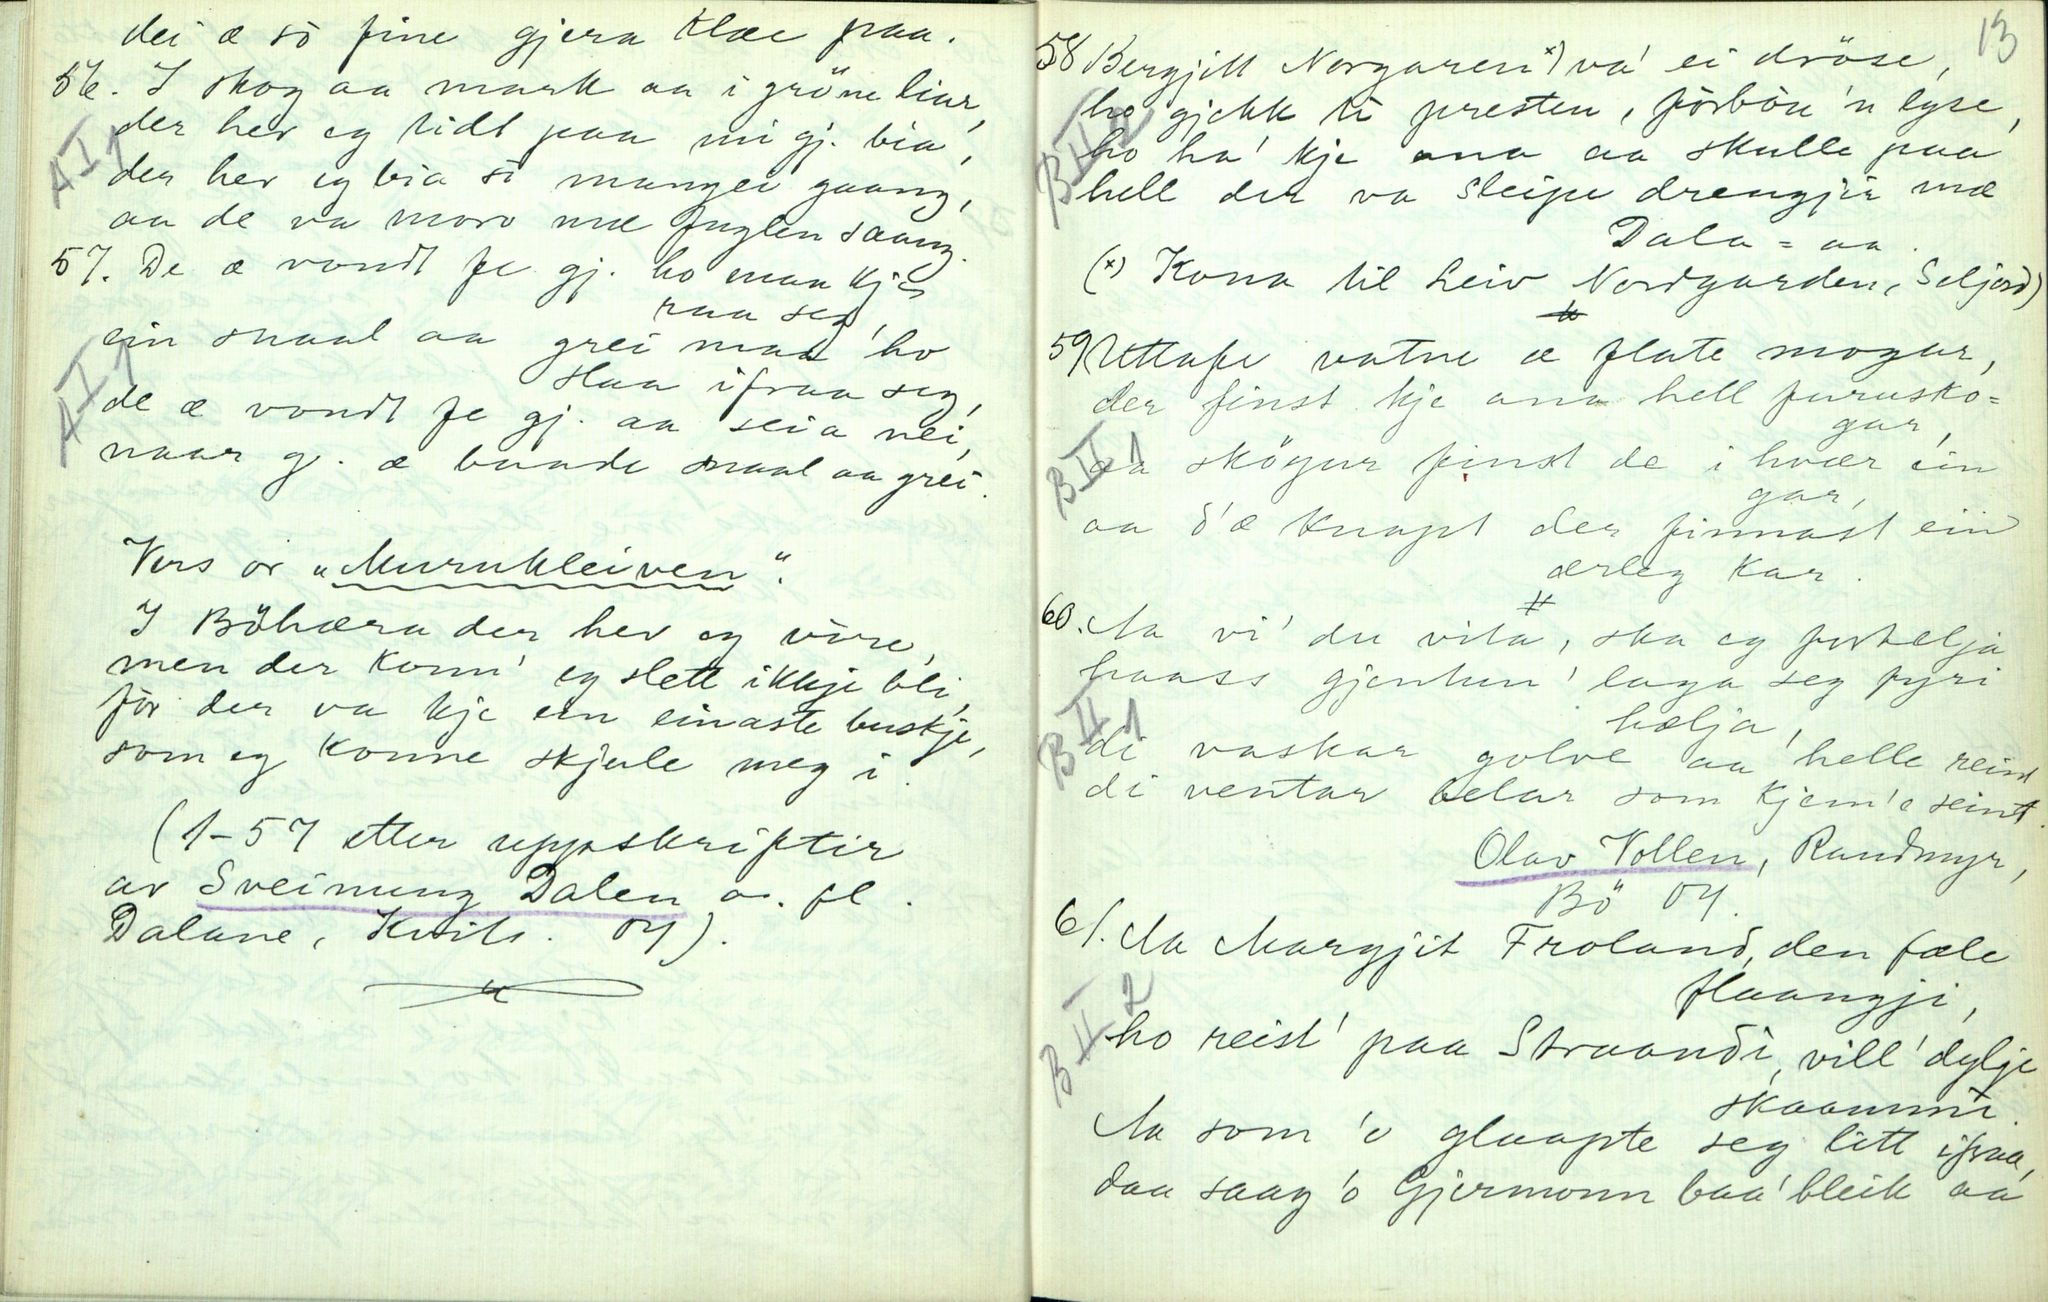 dei æ so fine gjera klæe paa.
56. I skog aa mark aa i gröne liar,
A I 1
der hev eg tidt paa mi gj. bia,
der hev eg bia so mangei gaang,
aa de va moro mæ fuglen saang.
57. De æ vondt fe gj. ho maa kje
raa seg,
A I 1
ein snaal aa grei maa ho
slaa ifraa seg,
de æ vondt fe gj. aa seia nei,
naar g. æ baade snaal aa grei.
Vers or "Murukleiven".
I Böhæra der hev eg vore,
men der konn' eg slett ikkje bli,
for der va kje ein einaste buskje,
som eg konne skjule meg i.
(1-57 etter uppskriftir
av Sveinung Dalen o. fl.
Dalane, Kvits. 04).
13
58 Bergjitt Norgaren x) va' ei dröse,
B II 2
ho gjekk ti presten, forböu 'n lyse,
ho ha' kje ana aa skulle paa
hell der va sleipe drengjir mæ
Dala=aa.
(x) Kona til Leiv Nordgarden, Seljord)
59 Uttafe vatne æ flate mogar,
der finst kje ana hell furusko=
gar,
B II 1
aa skögur finst de i hvær ein
gar,
aa d'æ knapt der finnast ein
ærleg kar.
60. Aa vi' du vita, ska eg fortelja
haass gjentun' laga seg fyri
hælja,
B II 1
di vaskar golve aa helle reint
di ventar belar som kjem'e seint.
Olav Vollen, Rundmyr,
Bö 04.
61. Aa Margjit Froland, den fæle
flaangji,
B II 2
ho reist' paa Straandi, vill' dylje
skaammi.
Aa som 'o glaapte seg litt ifraa,
daa saag 'o Gjermonn baa' bleik aa